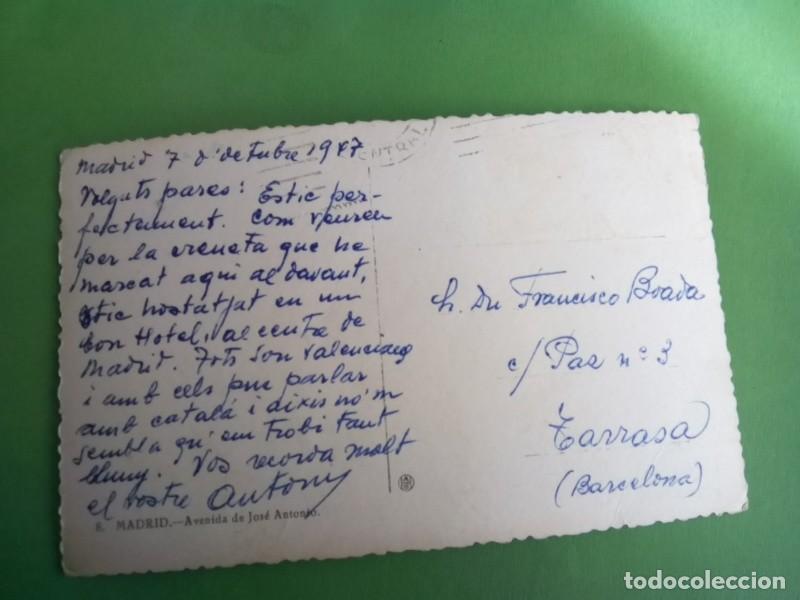 Madrid 7 d'octubre 1947
Volguts pares: Estic per-
fectament. Com veureu
per la creueta que he
marcat aquí al davant,
Estic hostatjat en un
bon Hotel, al centre de
Madrid. Tots son valencians
i amb ells puc parlar
amb català i aixis no'm
sembla qu'em trobi tant
lluny. Vos recorda molt
el vostre Antony
8. MADRID.—Avenida de José Antonio.
Francisco Boada
c/ Paz nº 3
Tarrasa
(Barcelona)
todocoleccion